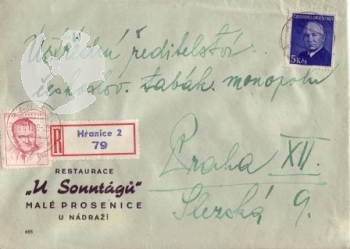 ČESKOSLOVENSKO
5 Kčs
Ústřední ředitelství
českoslov. tabák. monopolu
R
Hranice 2
79
Praha XII.
Slezská 9.
RESTAURACE
„U Sonntágů"
MALÉ PROSENICE
U NÁDRAŽÍ